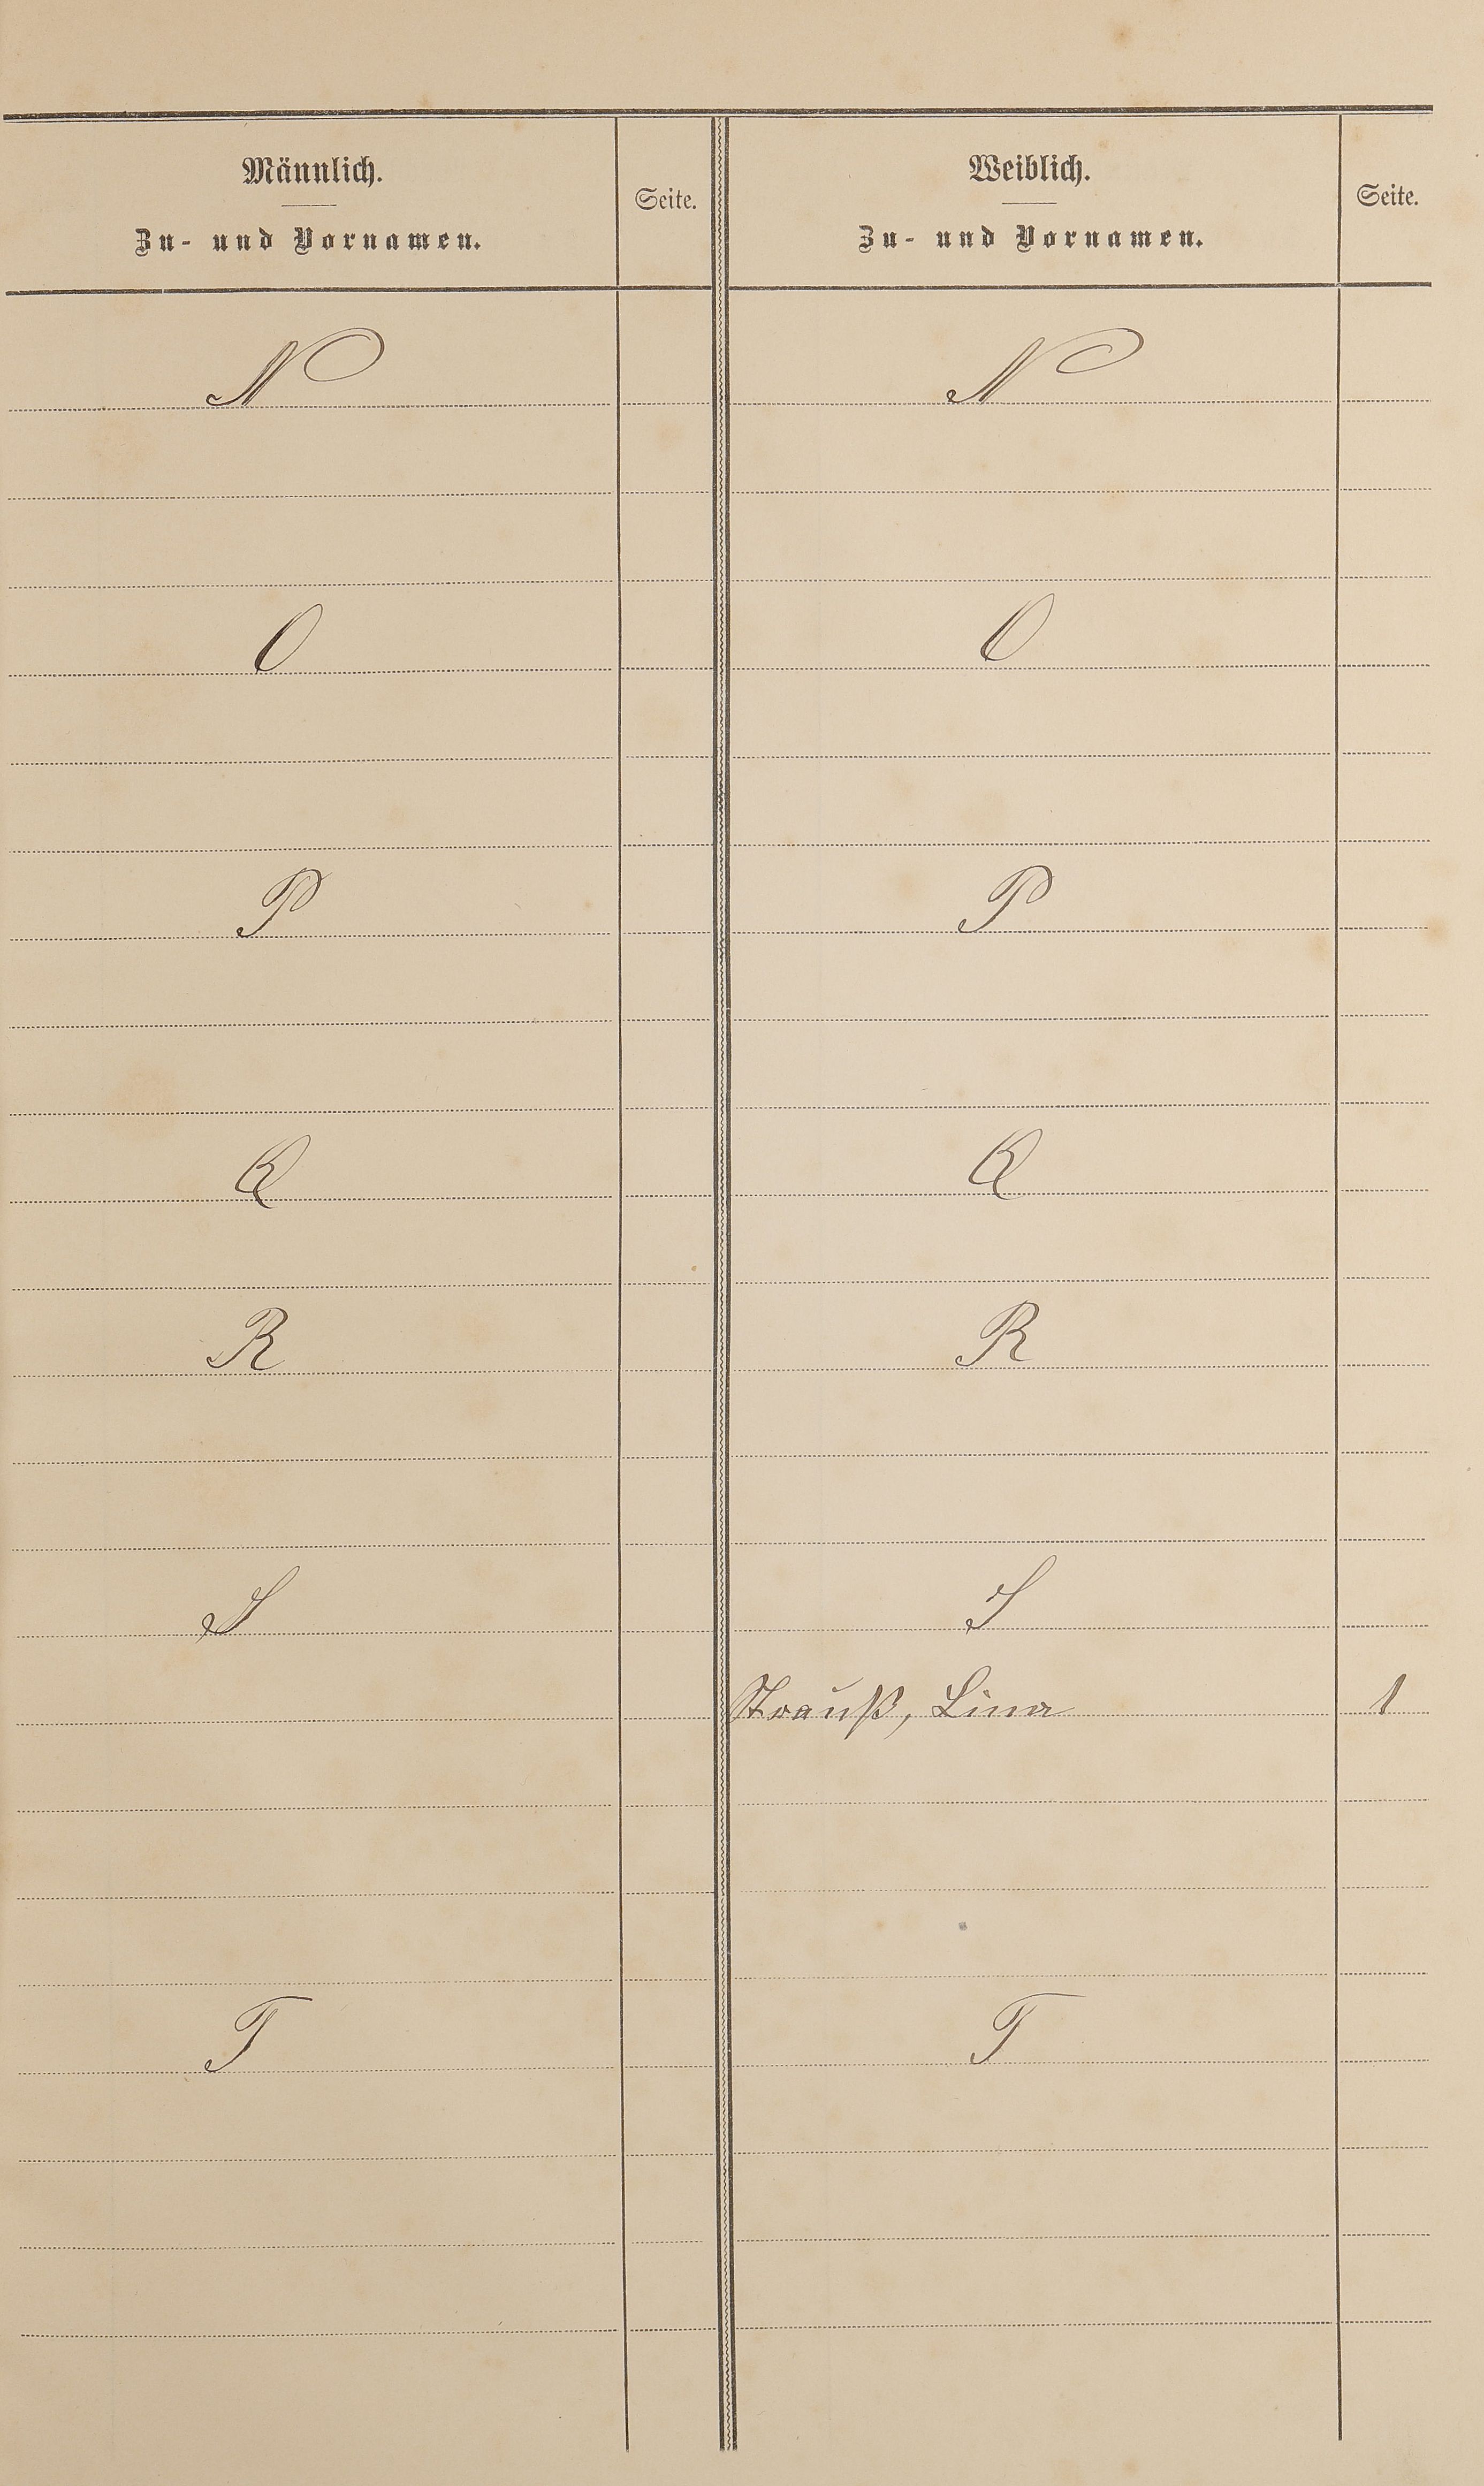 Männlich. Seite. Weiblich. Seite.
Zu- und Vornamen. Zu- und Vornamen.
N N
O O
P P
Q Q
R R
S S
Strauß, Lina 1
T T